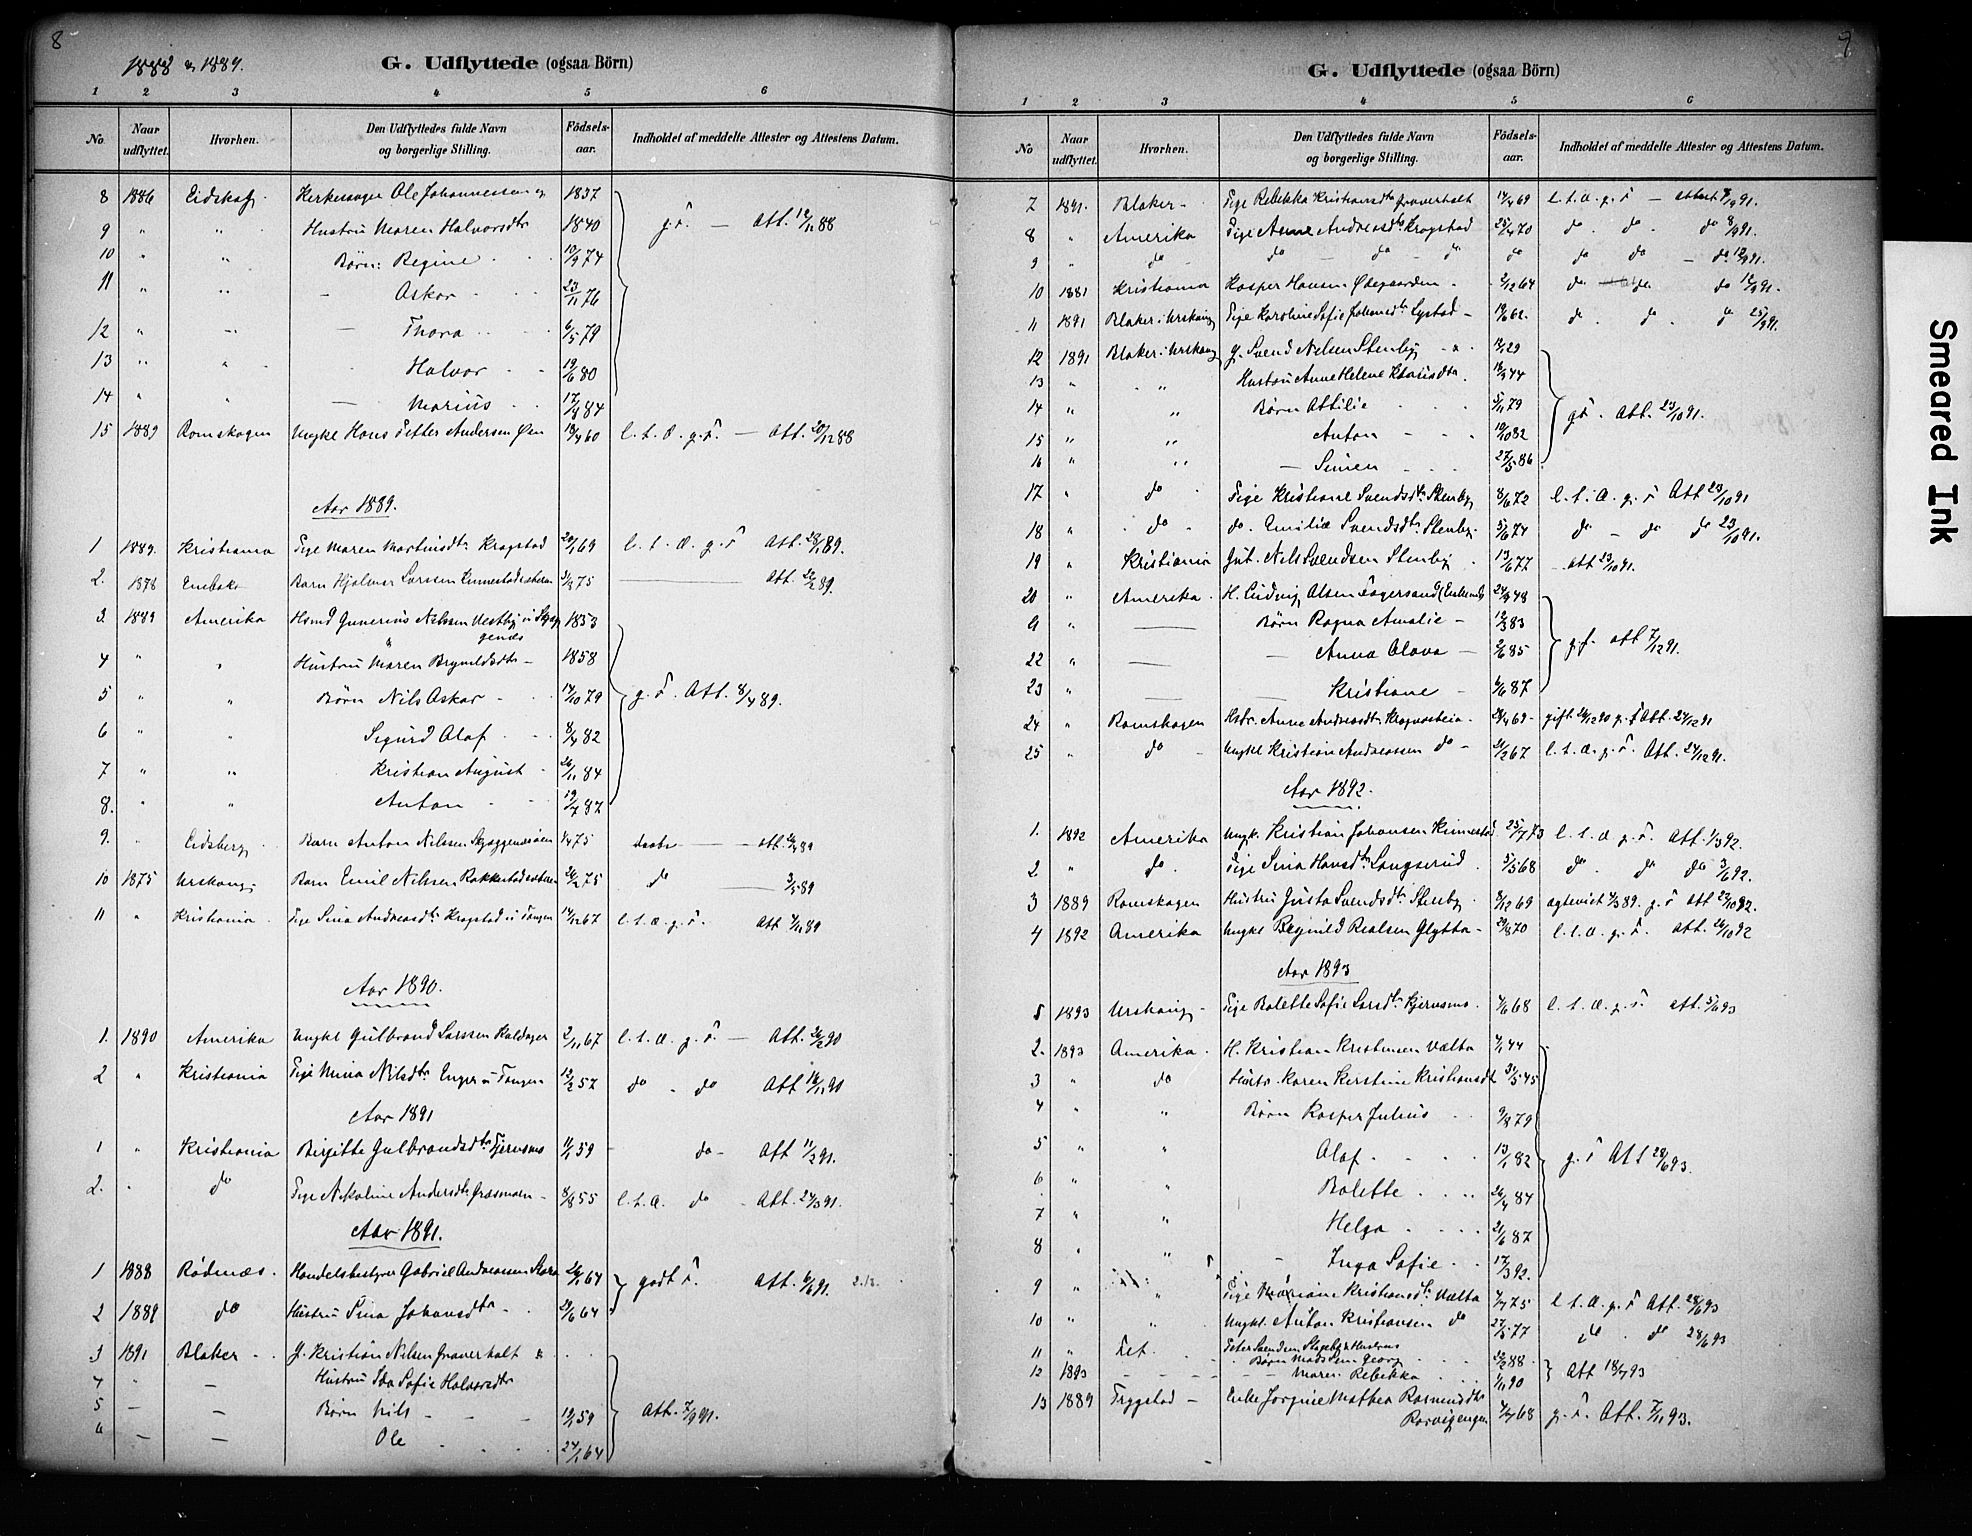 8
1888 & 1889.
G. Udflyttede (ogsaa Börn)
1 2 3 4 5 6
No. Naar udflyttet. Hvorhen. Den Udflyttedes fulde Navn og borgerlige Stilling. Födsels-aar. Indholdet af meddelte Attester og Attestens Datum.
8 1886 Eidskog Kirkesanger Ole Johannessen og 1837
9 " " Hustru Maren Halvorsdtr 1840 g.F. — Att. 12/11 88
10 " " Børn: Regine 10/9 74
11 " " — Askar 23/11 76
12 " " — Thora 6/5 79
13 " " Halvor 19/6 80
14 " " — Marius 17/4 84
15 1889 Romskogen Ungkl Hans Petter Andersen Øien 19/4 60 l.t.A.g.F. — Att. 20/12 88
Aar 1889.
1 1889. Kristiania Pige Maren Martinsdtr Kragstad 20/1 69 l.t.A.g.F Att. 28/1 89.
2. 1878 Enebak Barn Hjalmar Larssen 3/8 75 — Att. 26/2 89.
3. 1889 Amerika Hsmd Gunerius Nilssen Vestby u Skjøg 1853
genæs
4 " " Hustru Maren Brynildsdtr — 1858
5 " " Børn Nils Askar 14/10 79 g.F. Att. 8/4 89.
6 " " Sigurd Olaf 8/4 82
7 " " Kristian August 26/11 84
8. " " Anton 19/7 87
9. " Eidsberg Barn Anton Nilssen 1/4 75 døbt — Att. 24/4 89
10 1875 Urskoug Barn Emil Nilssen 26/2 75 do — 3/5 89
11 " Kristiania Pige Lina Andreasdtr Kragstad u Tangen 14/12 67 l.t.A.g.F. Att. 4/11 89
Aar 1890.
1. 1890 Amerika Ungkl Gulbrand Larssen Kaldager 2/11 67 l.t.A.g.F. — Att. 26/2 90
2 " Kristiania Pige Mina Nilsdtr Enger u Tangen 13/2 57 do - do Att 16/11 90
Aar 1891
1 " Kristiania Birgitte Gulbrandsdtr Kjernsmo 11/1 59 - do - Att 11/2 91.
2. " do Pige Nikoline Andersdtr Græsmoen - 8/8 55 l.t.A. do - Att. 24/3 91.
Aar 1891.
1 1888 Rødnæs. Handelsbestyrer Gabriel Andreassen Stora 26/1 64 godt F. Att. 6/6 91.
2 1889 do Hustru Lina Johansdtr 21/6 64
3 1891 Blaker G. Kristian Nilsen Graverholt
4 " — Hustru Ida Sofie Halvorsdtr
5 — — Børn Nils 19/1 59 Att. 7/9 91.
6 — — Ole 24/1 64
9
G. Udflyttede (ogsaa Börn)
1 2 3 4 5 6
No Naar udflyttet. Hvorhen. Den Udflyttedes fulde Navn og borgerlige Stilling. Födsels-aar. Indholdet af meddelte Attester og Attestens Datum.
7 1891. Blaker - Pige Rebekka Kristiansdtr Graverholt 14/4 69 l.t.A.g.F — attest 7/9 91.
8 " Amerika Pige Anne Andreasdtr Kragstad 25/4 70 do. do. do 8/9 91.
9 " do do — do — do do do do — do 12/9 91.
10 1881 Kristiania Kasper Hansen Ødegaarden 2/12 64 do do do 12/9 91.
11 1891 Blaker i Urskoug Pige Karoline Sofie Johansdtr Lystad - 19/6 62. do. do. do 25/9 91.
12 1891 Blaker i Urskoug G. Svend Nilsen Stenby 12/1 29
13 " " Hustru Anne Helene 18/9 44
14 " " Børn Attilie 5/11 79 gF. Att. 23/10 91.
15 " " Anton 19/10 82
16 " " — Simen 27/5 86
17 " do Pige Kristiane Svendsdtr Stenby 8/6 72 l.t.A.g.F Att 23/10 91
18 " do do. Emilie Svendsdtr Stenby 5/6 74 do — do do 23/10 91.
19 " Kristiania Gut. Nils Svendsen Stenby 13/6 77 - att 23/10 91.
20 " Amerika. H. Ludvig Olsen Fagersand (Enkemd) 24/9 48
21 " — Børn Ragna Amalie — 12/3 83 g.F. Att 7/12 91.
22 " — — Anna Olava — 2/6 85
23 " — — Kristiane — 6/6 87
24 " Romskogen Hstr. Anne Andreasdtr 28/4 69 - gift 26/12 90 g.F Att. 24/12 91
25 " do — Ungkl Kristian Andreassen do — 21/2 67 l.t.A.g.F. Att. 24/12 91.
Aar 1892.
1. 1892 Amerika Ungk. Kristian Johansen Kinnestad 25/7 73 l.t.A.g.F. Att. 1/3 92.
2 " do. Pige Lina Hansdtr Langserud. 5/5 68 do. do do 3/6 92.
3 1889 Romskogen Hustru Gusta Svendsdtr Stenby 8/12 69 ægteviet 4/3 89. g.F att 22/10 92.
4 1892 Amerika Ungkl Brynild Realsen Glytta — 29/8 70 l.t.A.g.F. Att. 26/10 92
Aar 1893
1 1893 Urskoug - Pige Bolette Sofie Larsdtr Kjernsmo. 4/6 68 l.t.A.g.F. att. 5/6 93
2. 1893 Amerika. H. Kristian Kristensen Vælta 4/1 44
3 " do Hustr. Karen Kirstine Kristiansdt 31/5 45
4 " " Børn Kasper Julius 9/8 79
5 " " Olaf 13/1 82 g.F Att 28/6 93.
6 " " Bolette 26/4 84
7 " " Helga 21/6 87
8 " " - Inga Sofie 17/3 92.
9 " " Pige Mariane Kristiansdtr Vælta 4/7 75 l.t.A.g.F Att. 28/6 93
10 " " Ungkl. Anton Kristiansen do 27/5 77 do. do 28/6 93.
11 " Fet. Peter Svendsen Hustrus
Børn Madssen Georg 22/2 88.
12 1893 — Maren Rebekka 1/11 90 Att 18/7 93
13 1889 Trygstad — Enke Jørgine Mathea Rasmusdtr
Rorvigengen 4/4 68 g.F. Att. 7/11 93.
Smeared Ink